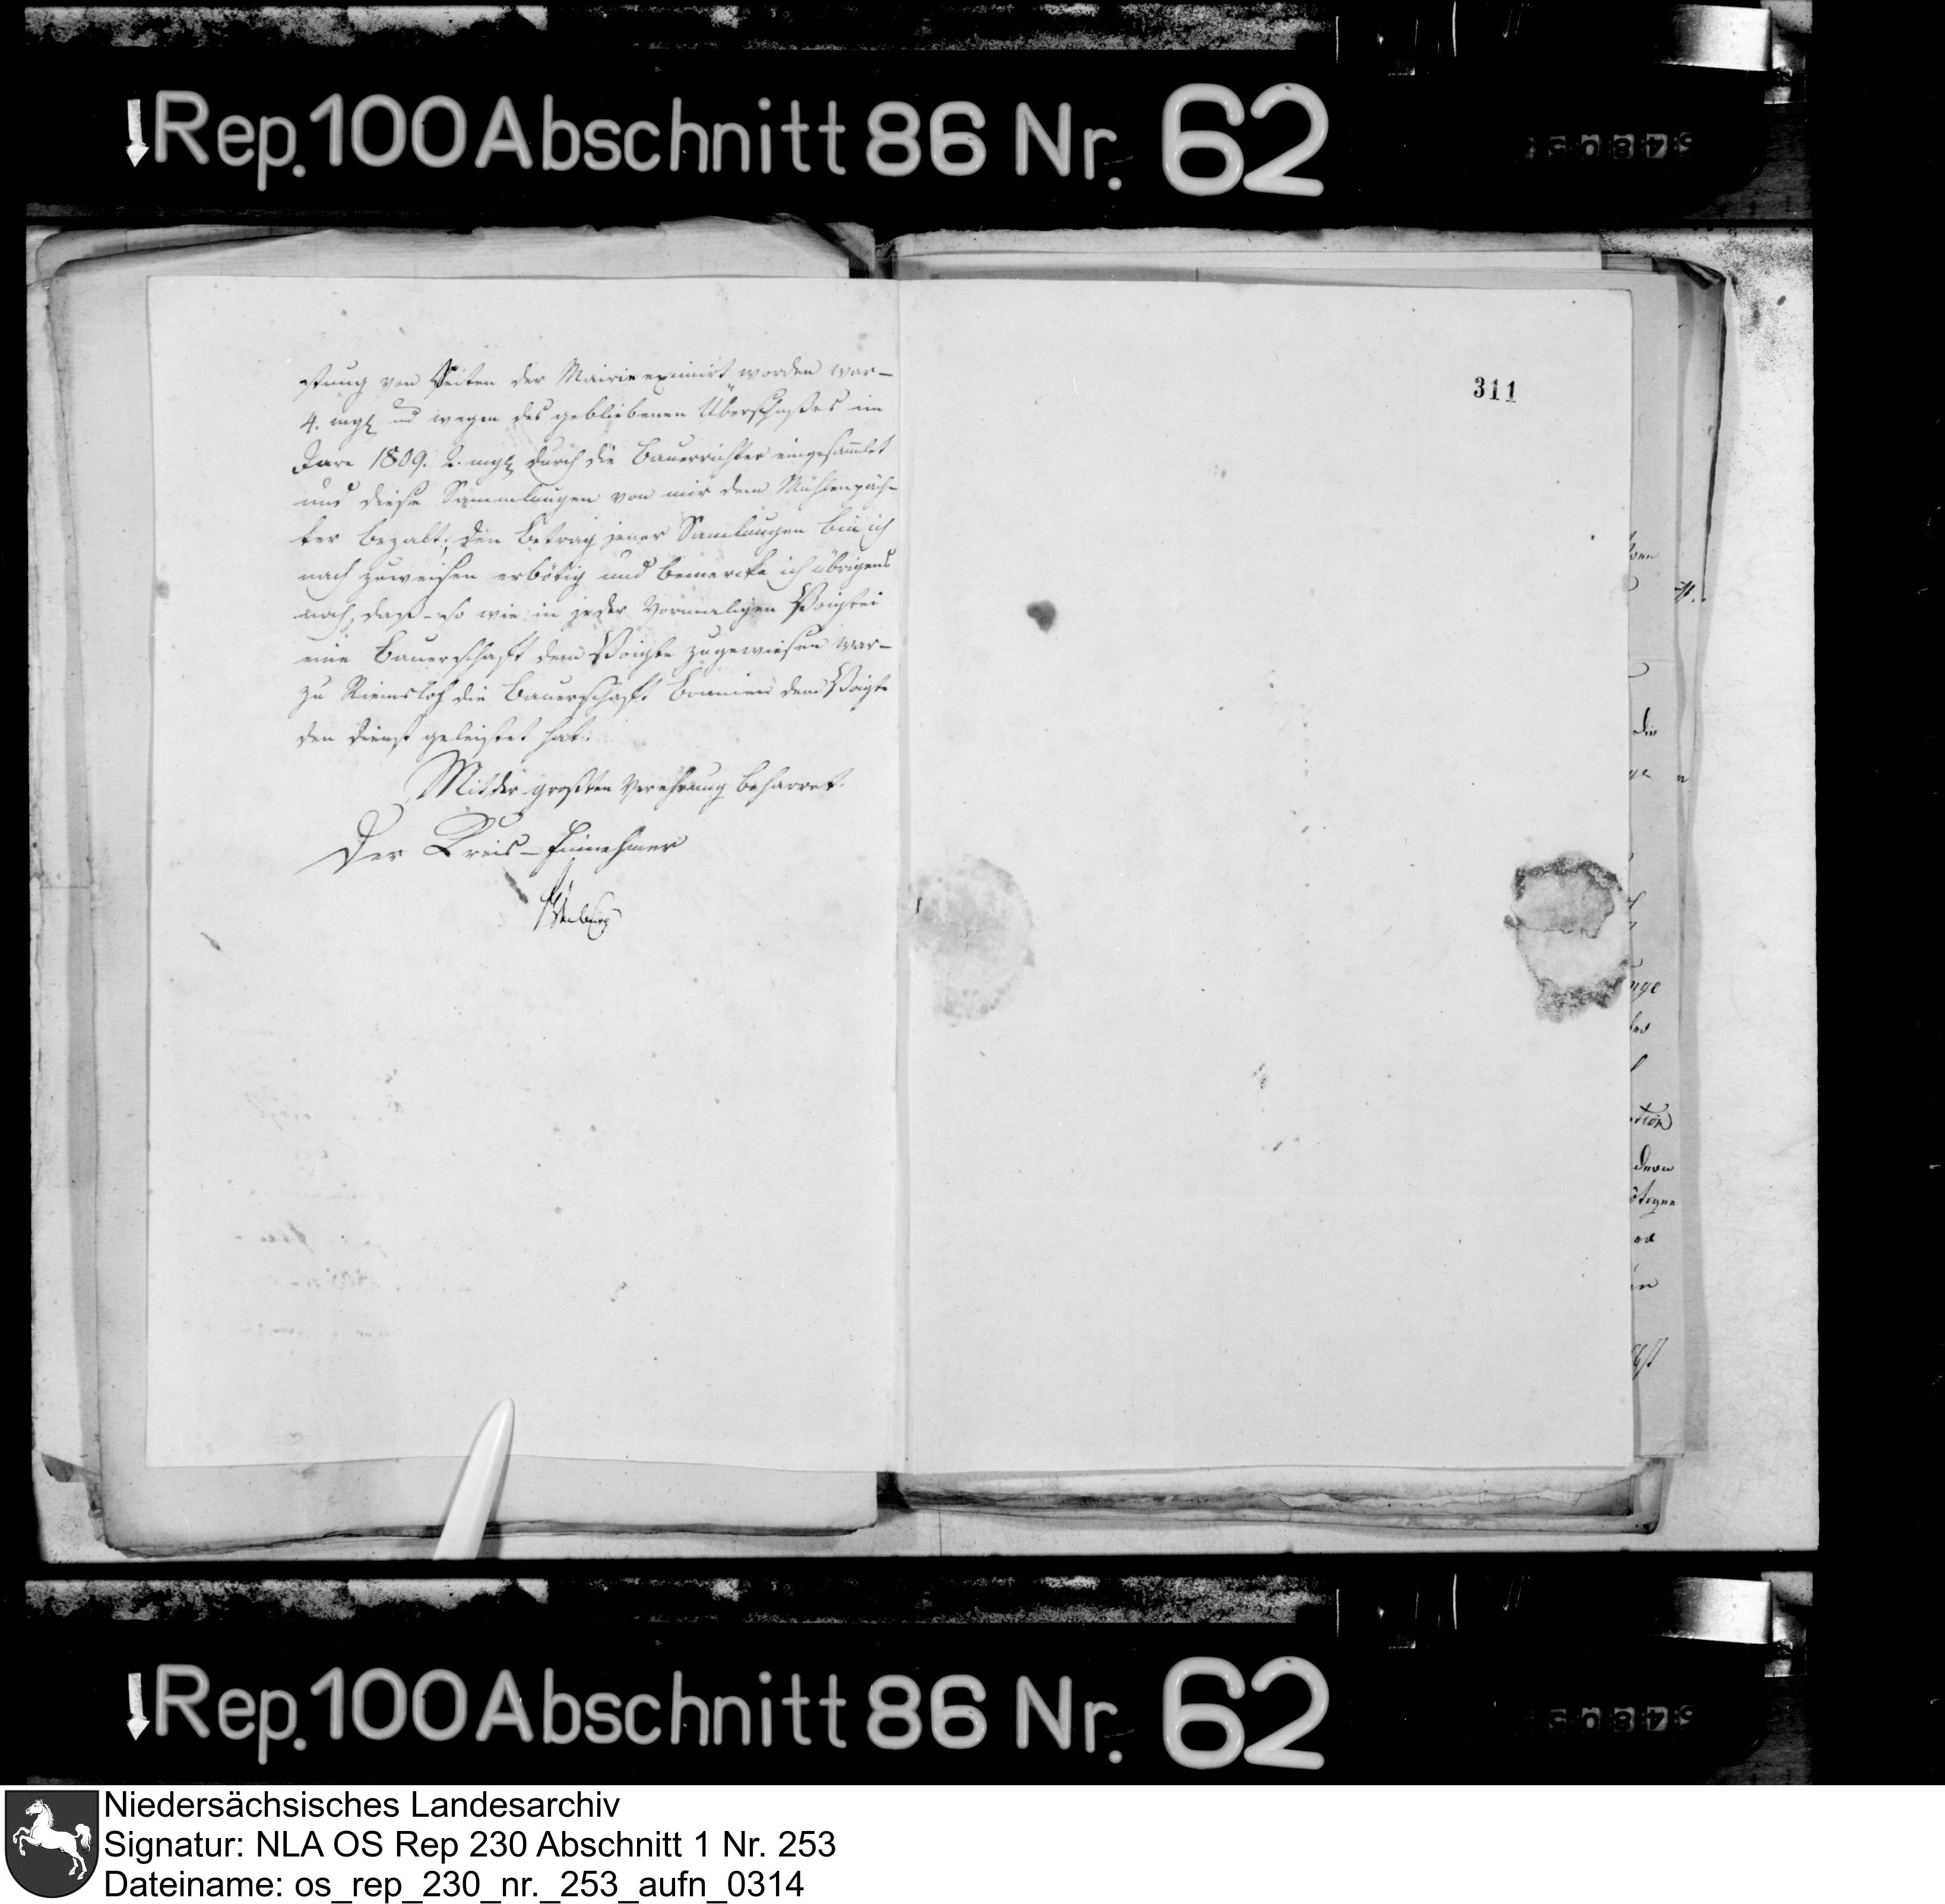 Rep. 100 Abschnitt 86 Nr. 62
stung von Seiten der Mairie eximirt worden war–
4. mgl und wegen des gebliebenen Überschußes im
Jare 1809. 2. mgl durch die Bauerrichter eingesammlet
und diese Sammlungen von mir dem Mühlenpäch-
ter bezalt; den Betrag jener Samlungen bin ich
nach zuweisen erbötig und bemercke ich übrigens
noch, daß – so wie in jeder vormaligen Voigtei
eine Bauerschaft dem Voigte zugewiesen war –
zu Riemsloh die Bauerschaft dem Voigte
den dienst geleistet hat.
Mit der großten Verehrung beharret.
Der Kreis-Einnehmer
311
Rep. 100 Abschnitt 86 Nr. 62
Niedersächsisches Landesarchiv
Signatur: NLA OS Rep 230 Abschnitt 1 Nr. 253
Dateiname: os_rep_230_nr._253_aufn_0314